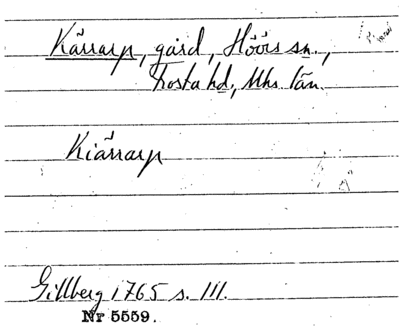 Kärrarp, gård, Höörs sn.,
Frosta hd., Mhs län.
Kiärrarp
Gillberg 1765 s. 111.
Nr 5559.